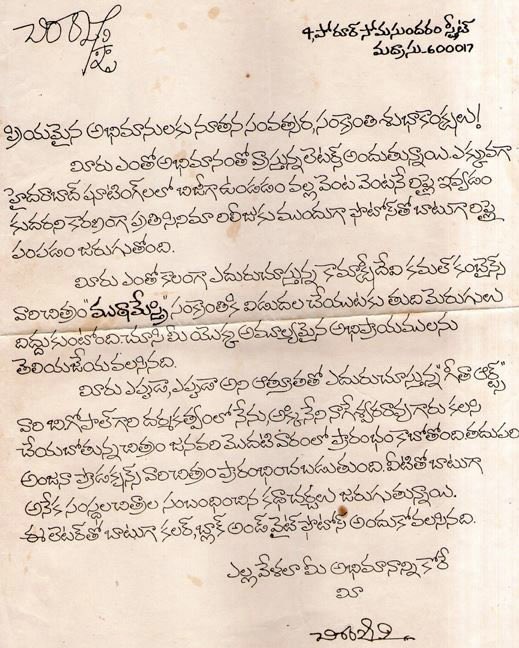 4, పోరూర్ సోమసుందరం స్ట్రీట్
మద్రాసు-600017
ప్రియమైన అభిమానులకు నూతన సంవత్సర, సంక్రాంతి శుభాకాంక్షలు!
మీరు ఎంతో అభిమానంతో వ్రాస్తున్న లెటర్స్ అందుతున్నాయి. ఎక్కువగా
హైదరాబాద్ షూటింగ్‌లలో బిజీగా ఉండడం వల్ల వెంట వెంటనే రిప్లై ఇవ్వడం
కుదరని కారణంగా ప్రతిసినిమా రిలీజుకు ముందుగా ఫొటోస్‌తో బాటుగా రిప్లై
పంపడం జరుగుతోంది.
మీరు ఎంతో కాలంగా ఎదురుచూస్తున్న కామాక్షీదేవి కమల్ కంబైన్స్
వారి చిత్రం "ముఠామేస్త్రి" సంక్రాంతికి విడుదల చేయుటకు తుది మెరుగులు
దిద్దుకుంటోంది. చూసి మీ యొక్క అమూల్యమైన అభిప్రాయములను
తెలియజేయవలసినది.
మీరు ఎప్పుడా, ఎప్పుడా అని ఆత్రుతతో ఎదురు చూస్తున్న "గీతా ఆర్ట్స్"
వారి బి.గోపాల్ గారి దర్శకత్వంలో నేను, అక్కినేని నాగేశ్వరరావు గారు కలిసి
చేయబోతున్న చిత్రం జనవరి మొదటి వారంలో ప్రారంభం కాబోతోంది తదుపరి
అంజనా ప్రొడక్షన్స్ వారి చిత్రం ప్రారంభించబడుతుంది. వీటితో బాటుగా
అనేక సంస్థల చిత్రాల సంబంధించిన కథా చర్చలు జరుగుతున్నాయి.
ఈ లెటర్‌తో బాటుగా కలర్, బ్లాక్ అండ్ వైట్ ఫొటోస్ అందుకోవలసినది.
ఎల్లవేళలా మీ అభిమానాన్ని కోరే
మీ
చిరంజీవి